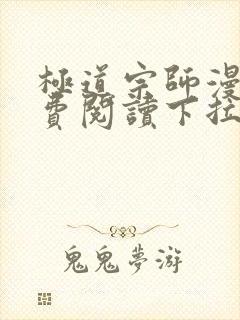 極道宗師漫
費閱讀下拉
鬼鬼夢游